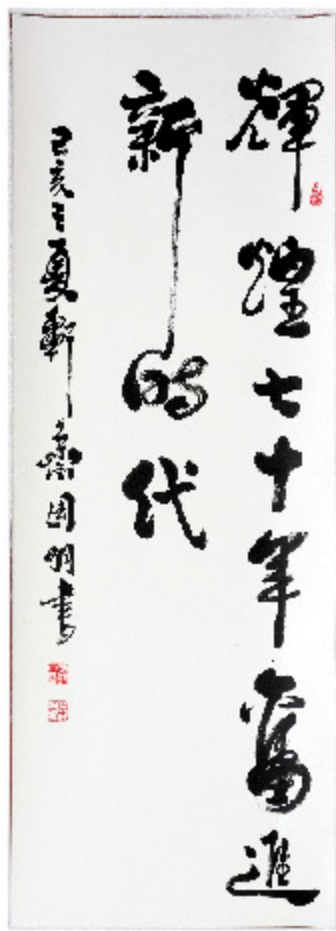 輝煌七十年奮進
新時代
己亥之夏軒 周明書